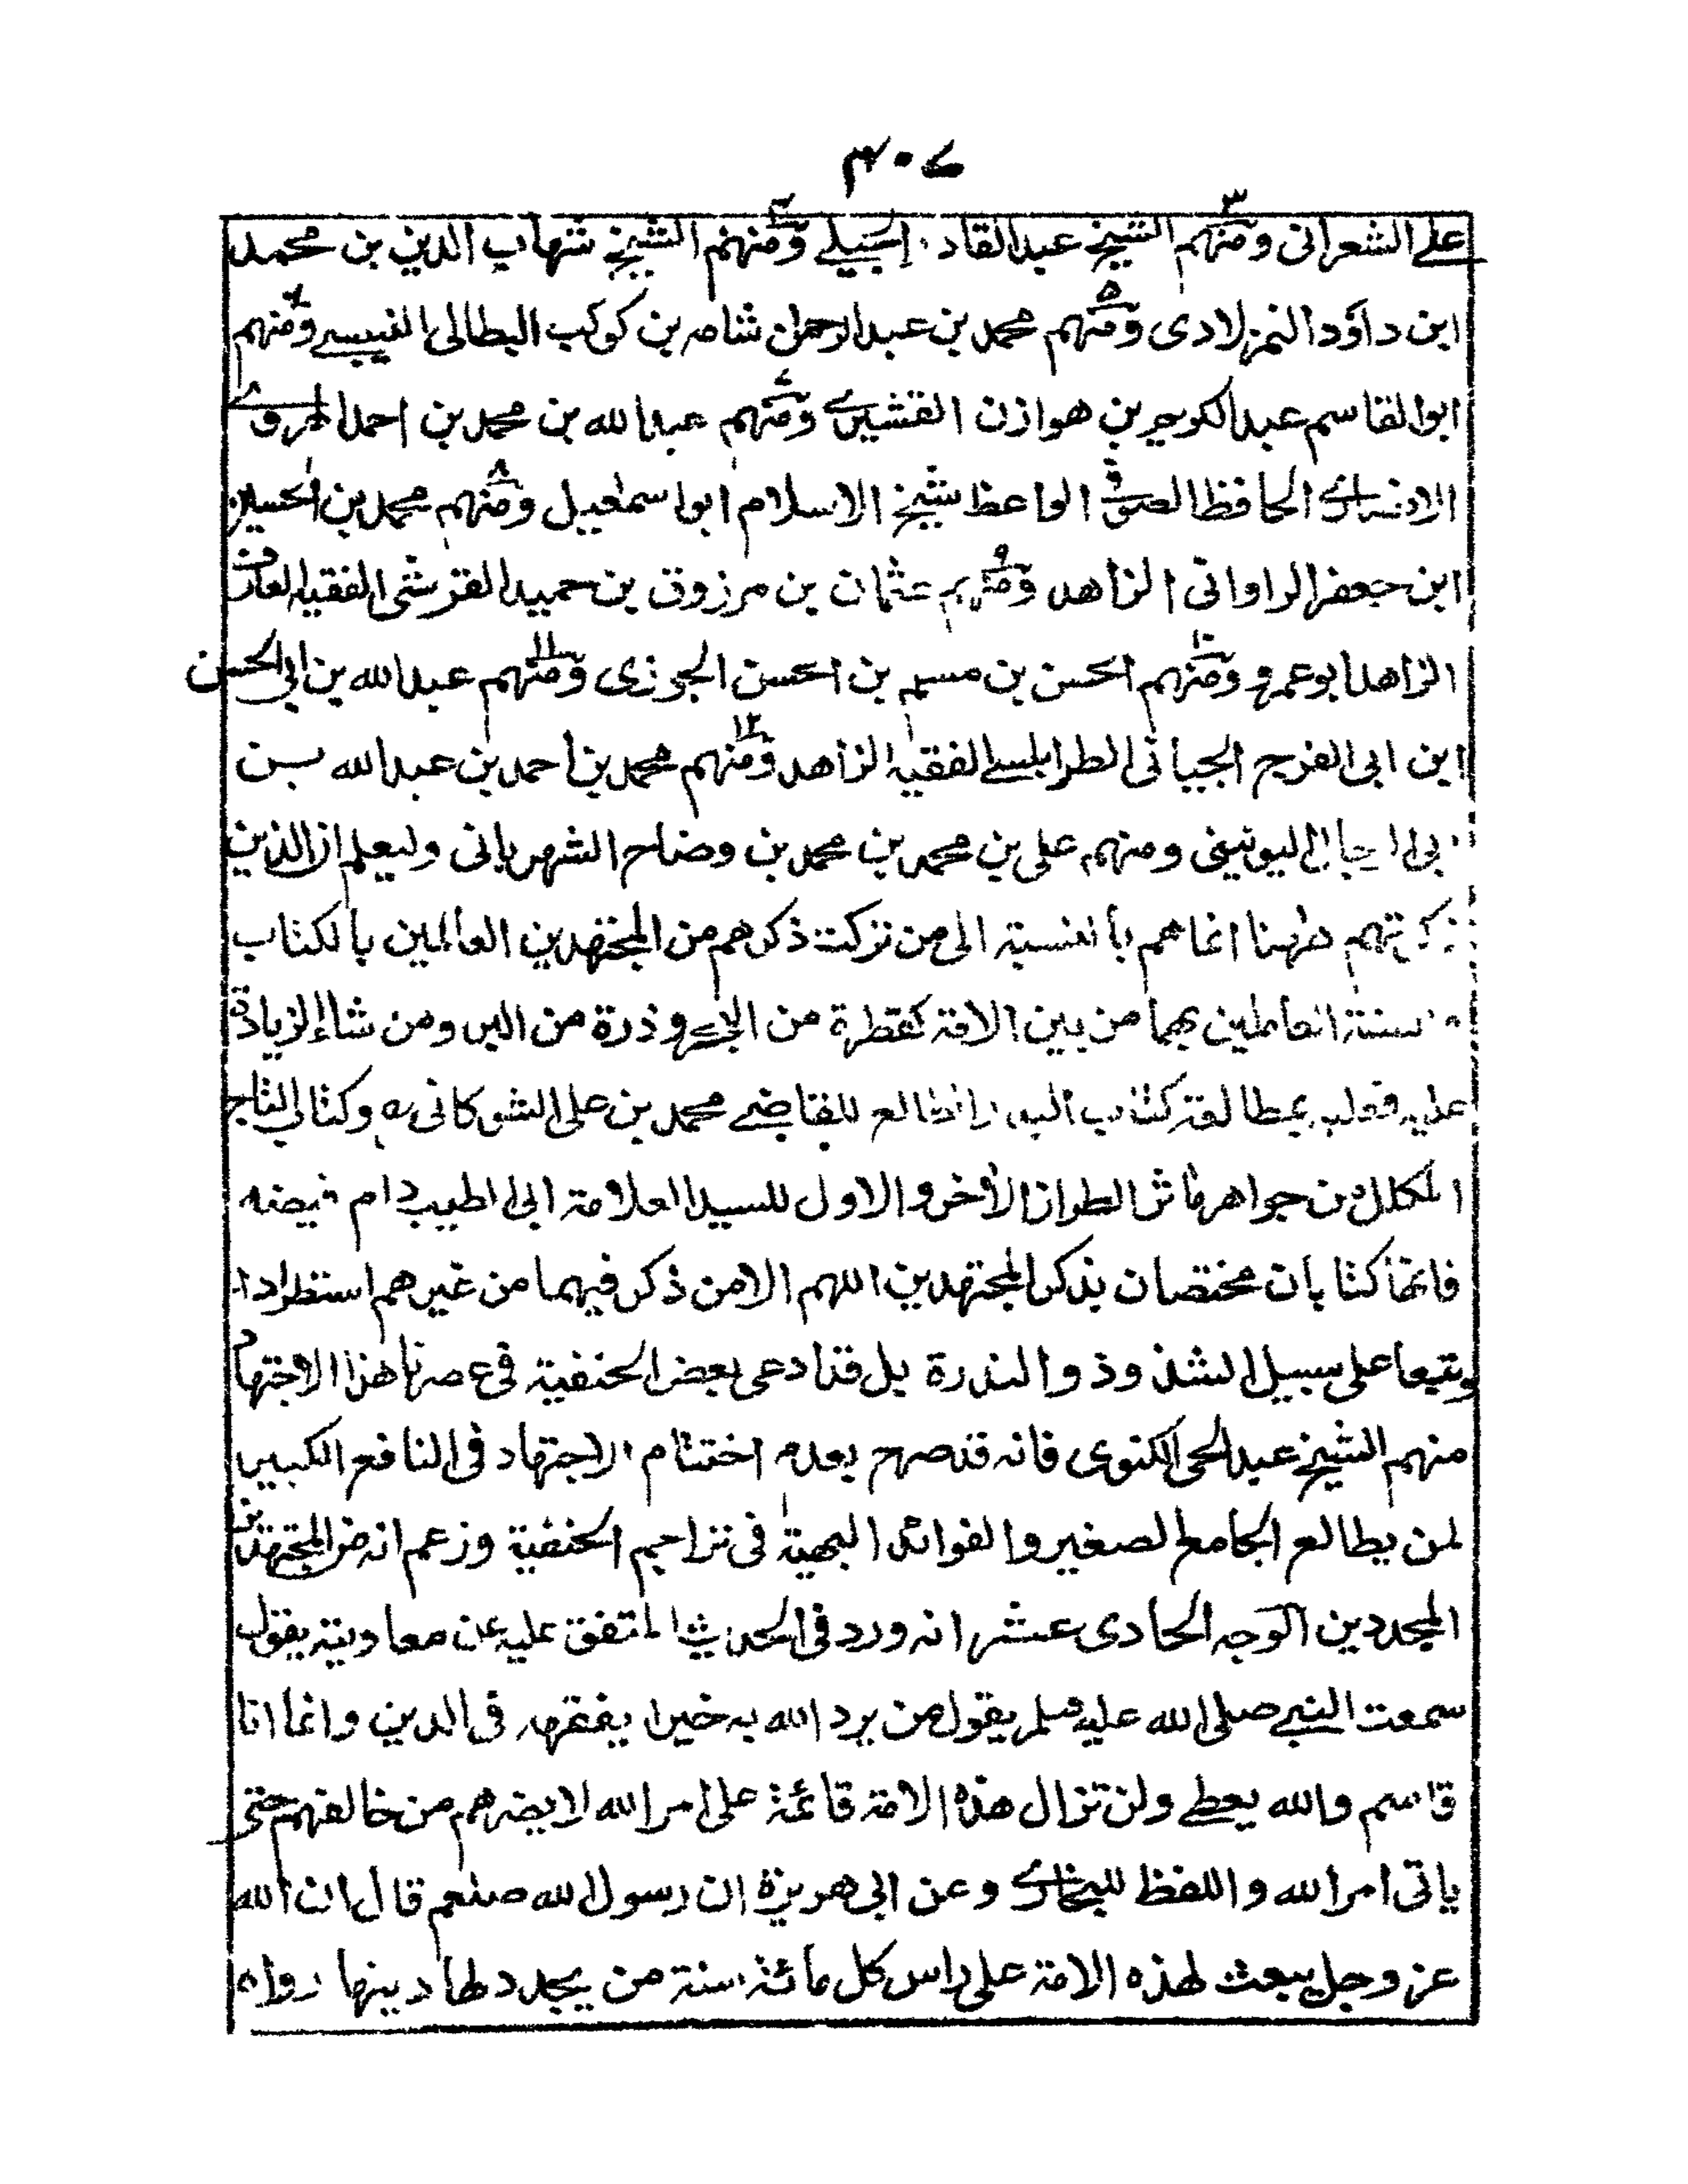 ٣٠٧
علي الشعرانى ومنهم الشيخ عبد القادر الجيلي ومنهم الشيخ شهاب الدين بن محمد
ابن داود النمزلادى ومنهم محمد بن عبد الرحمان شامه بن كوكب البطالى النفيسي ومنهم
ابو القاسم عبد الكريم بن هوازن القشيري ومنهم عبد الله بن محمد بن احمد الهروي
الانصاري الحافظ الصوفي الواعظ شيخ الاسلام ابو اسمعيل ومنهم محمد بن الحسين
ابن جعفر الراوانى الزاهد ومنهم عثمان بن مرزوق بن حميد القرشى الفقيه العارف
الزاهد ابو عمرو ومنهم الحسن بن مسلم بن الحسن الجوزى ومنهم عبد الله بن ابي الحسن
ابن ابى الفرج الجيانى الطرابلسي الفقيه الزاهد ومنهم محمد بن احمد بن عبد الله بن
ابى الرجال اليونينى ومنهم على بن محمد بن محمد بن وضاح الشهربانى وليعلم ان الذين
ذكرتهم ههنا انما هم بالنسبة الى من تركت ذكرهم من المجتهدين العالمين بالكتاب
والسنة العاملين بهما من بين الامة كقطرة من البحر وذرة من البر ومن شاء الزيادة
عليه فعليه بمطالعة كتاب البدر الطالع للقاضي محمد بن على الشوكانى ره وكتاب التاج
المكلل من جواهر ماثر الطراز الاخر والاول للسيد العلامة ابى الطيب دام فيضه
فانهما كتابان مختصان بذكر المجتهدين اللهم الا من ذكر فيهما من غيرهم استطرادا
وتبعا على سبيل الشذوذ والندرة بل قد ادعى بعض الحنفية فى عصرنا هذا الاجتهاد
منهم الشيخ عبد الحى الكنوى فانه قد صرح بعدم اختتام الاجتهاد فى النافع الكبير
لمن يطالع الجامع الصغير والفوائد البهية فى تراجم الحنفية وزعم انه من المجتهدين
المجددين الوجه الحادى عشر انه ورد فى الحديث المتفق عليه عن معاوية يقول
سمعت النبي صلى الله عليه وسلم يقول من يرد الله به خيرا يفقهه فى الدين وانما انا
قاسم والله يعطي ولن تزال هذه الامة قائمة على امر الله لا يضرهم من خالفهم حتى
ياتى امر الله واللفظ للبخاري وعن ابى هريرة ان رسول الله صلعم قال ان الله
عز وجل يبعث لهذه الامة على راس كل مائة سنة من يجدد لها دينها رواه